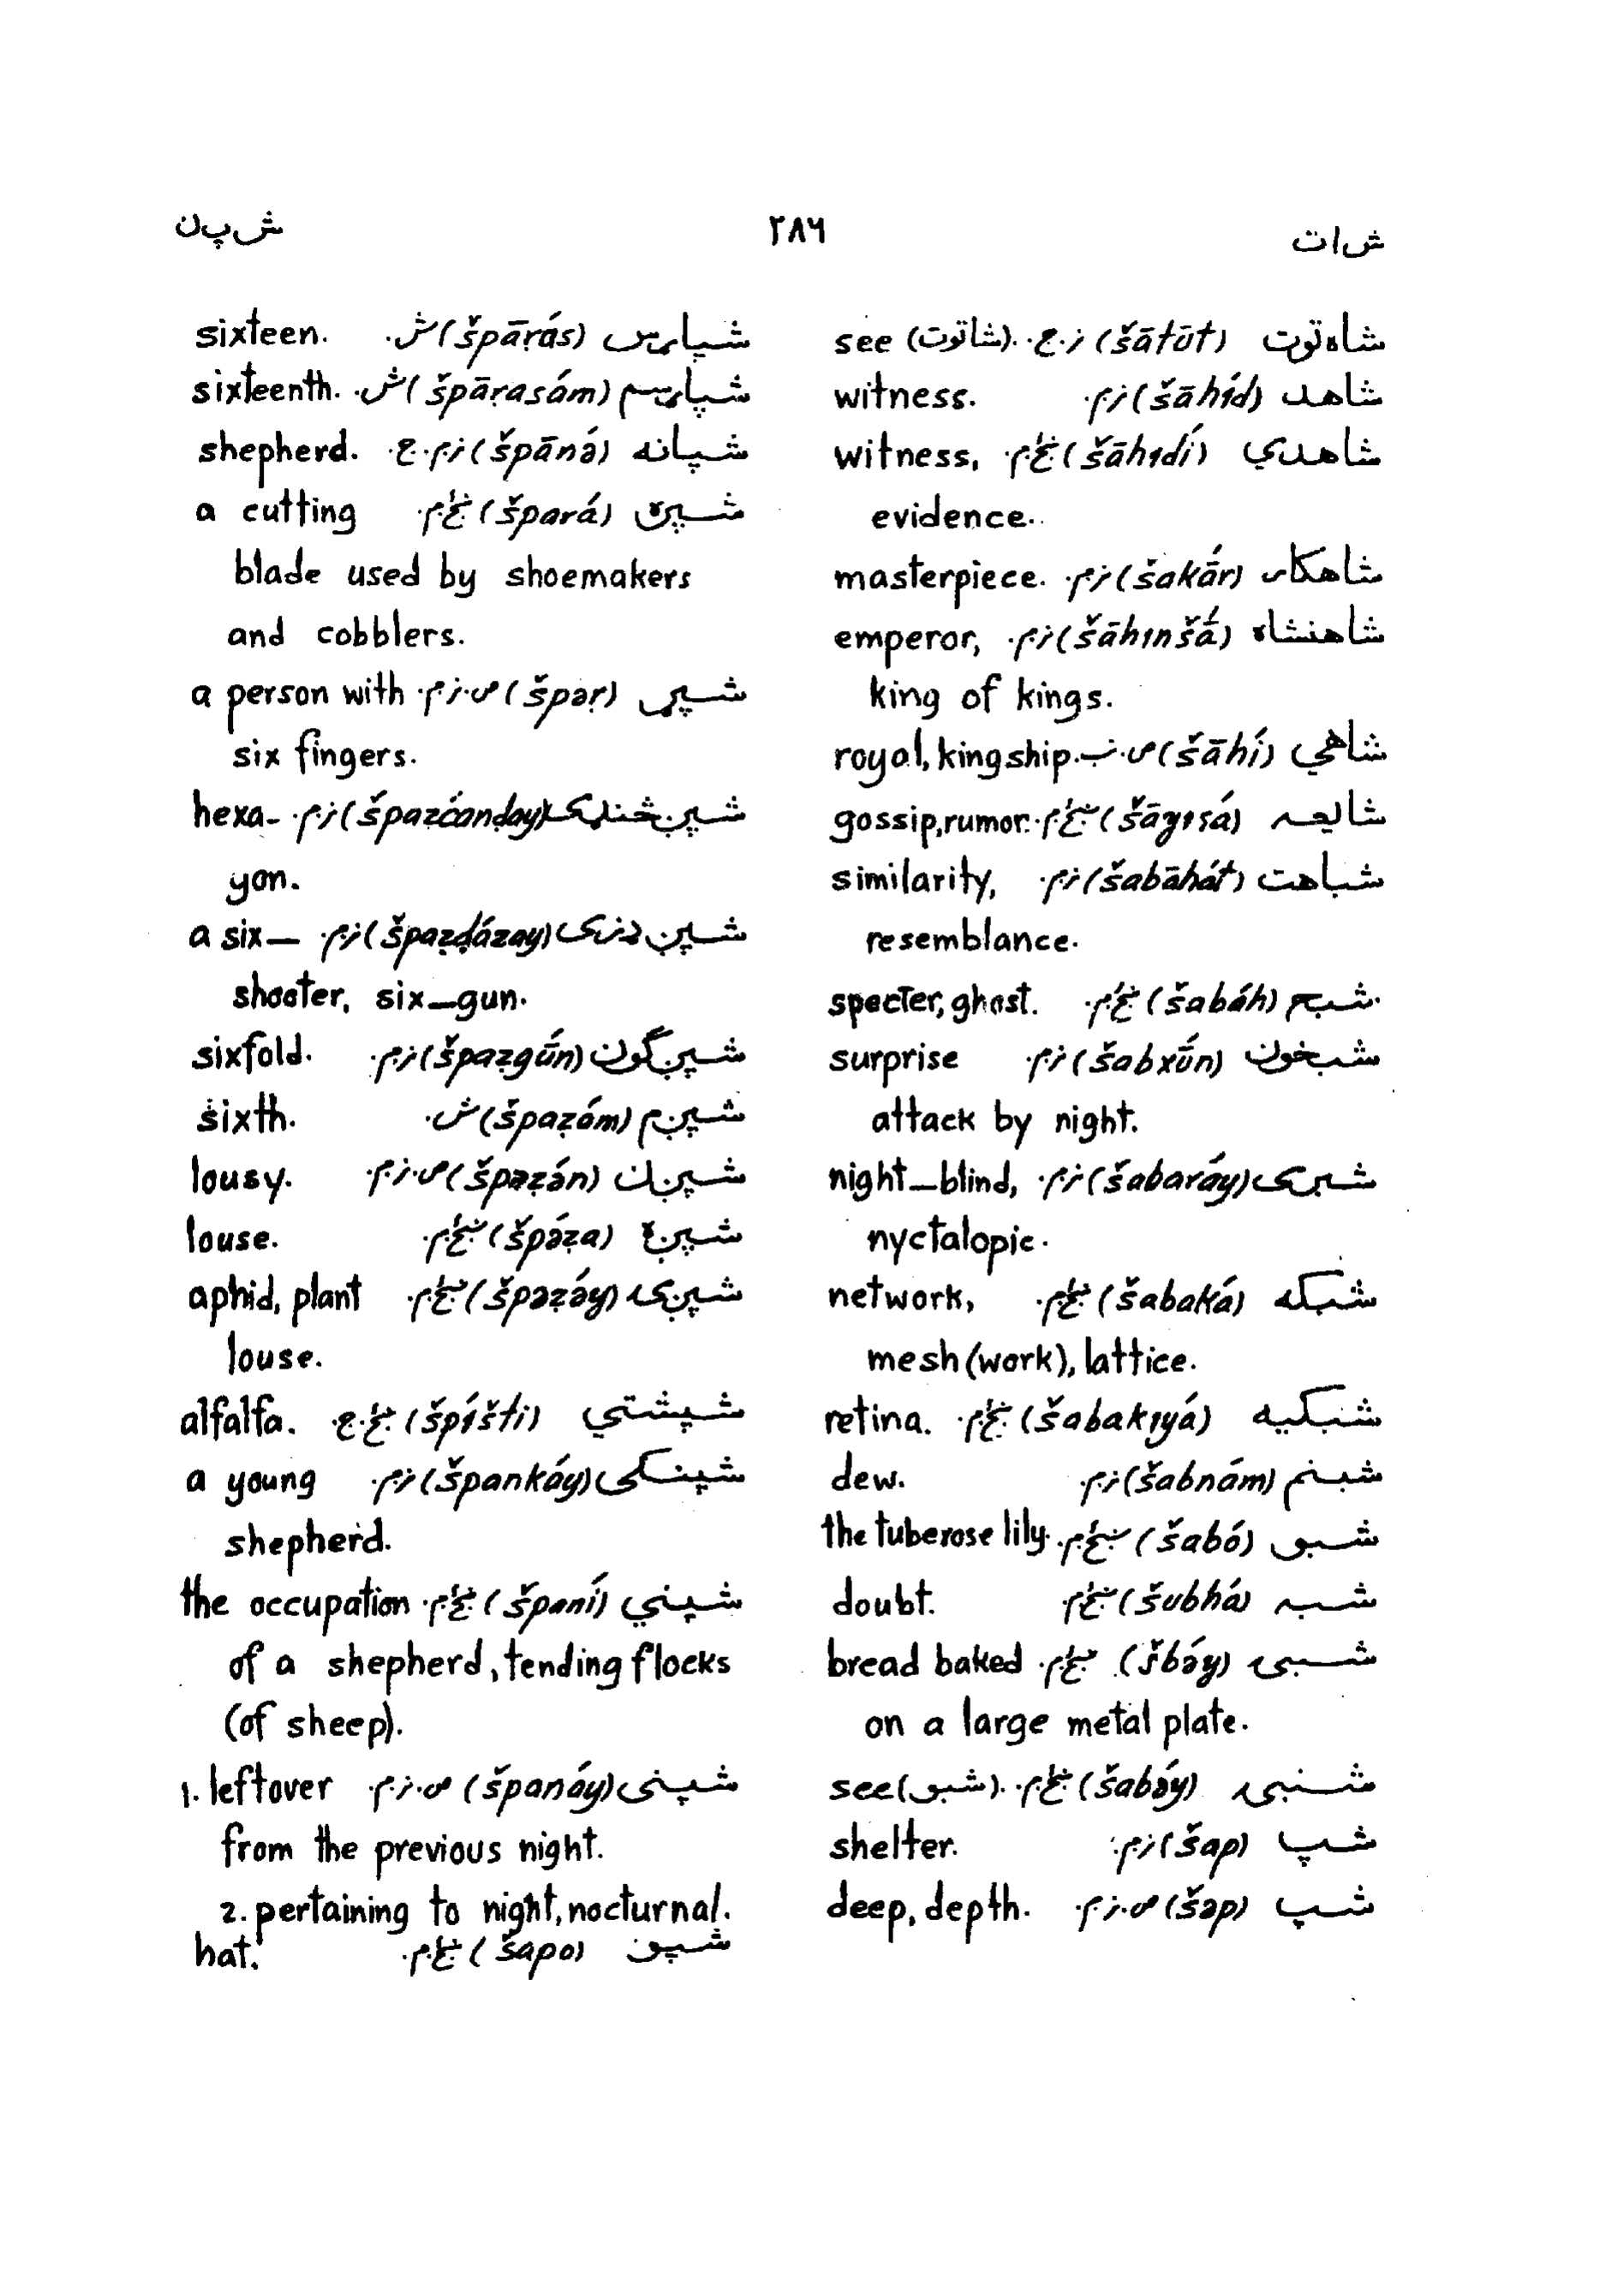 ش ا ت
۲۸۶
ش پ ن
شاه‌توت (šātūt) نر.ج. see (شاتوت).
شاهد (šāhíd) نر.م. witness.
شاهدي (šāhɪdí) ښځ.م. witness,
evidence.
شاهکار (šakā́r) نر.م. masterpiece.
شاهنشاه (šāhɪnšā́) نر.م. emperor,
king of kings.
شاهي (šāhí) ص.ب. royal, kingship.
شایعه (šāyɪʕá) ښځ.م. gossip, rumor.
شباهت (šabāhát) نر.م. similarity,
resemblance.
شبح (šabáh) ښځ.م. specter, ghost.
شبخون (šabxū́n) نر.م. surprise
attack by night.
شبری (šabaráy) نر.م. night-blind,
nyctalopic.
شبکه (šabaká) ښځ.م. network,
mesh(work), lattice.
شبکیه (šabakɪyá) ښځ.م. retina.
شبنم (šabnám) نر.م. dew.
شبو (šabó) ښځ.م. the tuberose lily.
شبه (šubhá) ښځ.م. doubt.
شبۍ (šbə́y) ښځ.م. bread baked
on a large metal plate.
شنبۍ (šabə́y) ښځ.م. see (شبو).
شپ (šap) نر.م. shelter.
شپ (šəp) ص.نر.م. deep, depth.
شپاړس (špāṛás) ش. sixteen.
شپاړسم (špāṛasə́m) ش. sixteenth.
شپانه (špānə́) نر.م.ج. shepherd.
شپره (špará) ښځ.م. a cutting
blade used by shoemakers
and cobblers.
شپړ (špəṛ) ص.نر.م. a person with
six fingers.
شپږڅنډی (špaẓćanḍay) نر.م. hexa-
gon.
شپږډزی (špaẓḍázay) نر.م. a six-
shooter, six-gun.
شپږګون (špaẓgū́n) نر.م. sixfold.
شپږم (špaẓə́m) ش. sixth.
شپږن (špəẓə́n) ص.نر.م. lousy.
شپږه (špə́ẓa) ښځ.م. louse.
شپږۍ (špəẓə́y) ښځ.م. aphid, plant
louse.
شپشتي (špíšti) ښځ.ج. alfalfa.
شپنکی (špankáy) نر.م. a young
shepherd.
شپني (španí) ښځ.م. the occupation
of a shepherd, tending flocks
(of sheep).
شپنی (španáy) ص.نر.م. 1. leftover
from the previous night.
2. pertaining to night, nocturnal.
شپو (šapo) ښځ.م. hat.